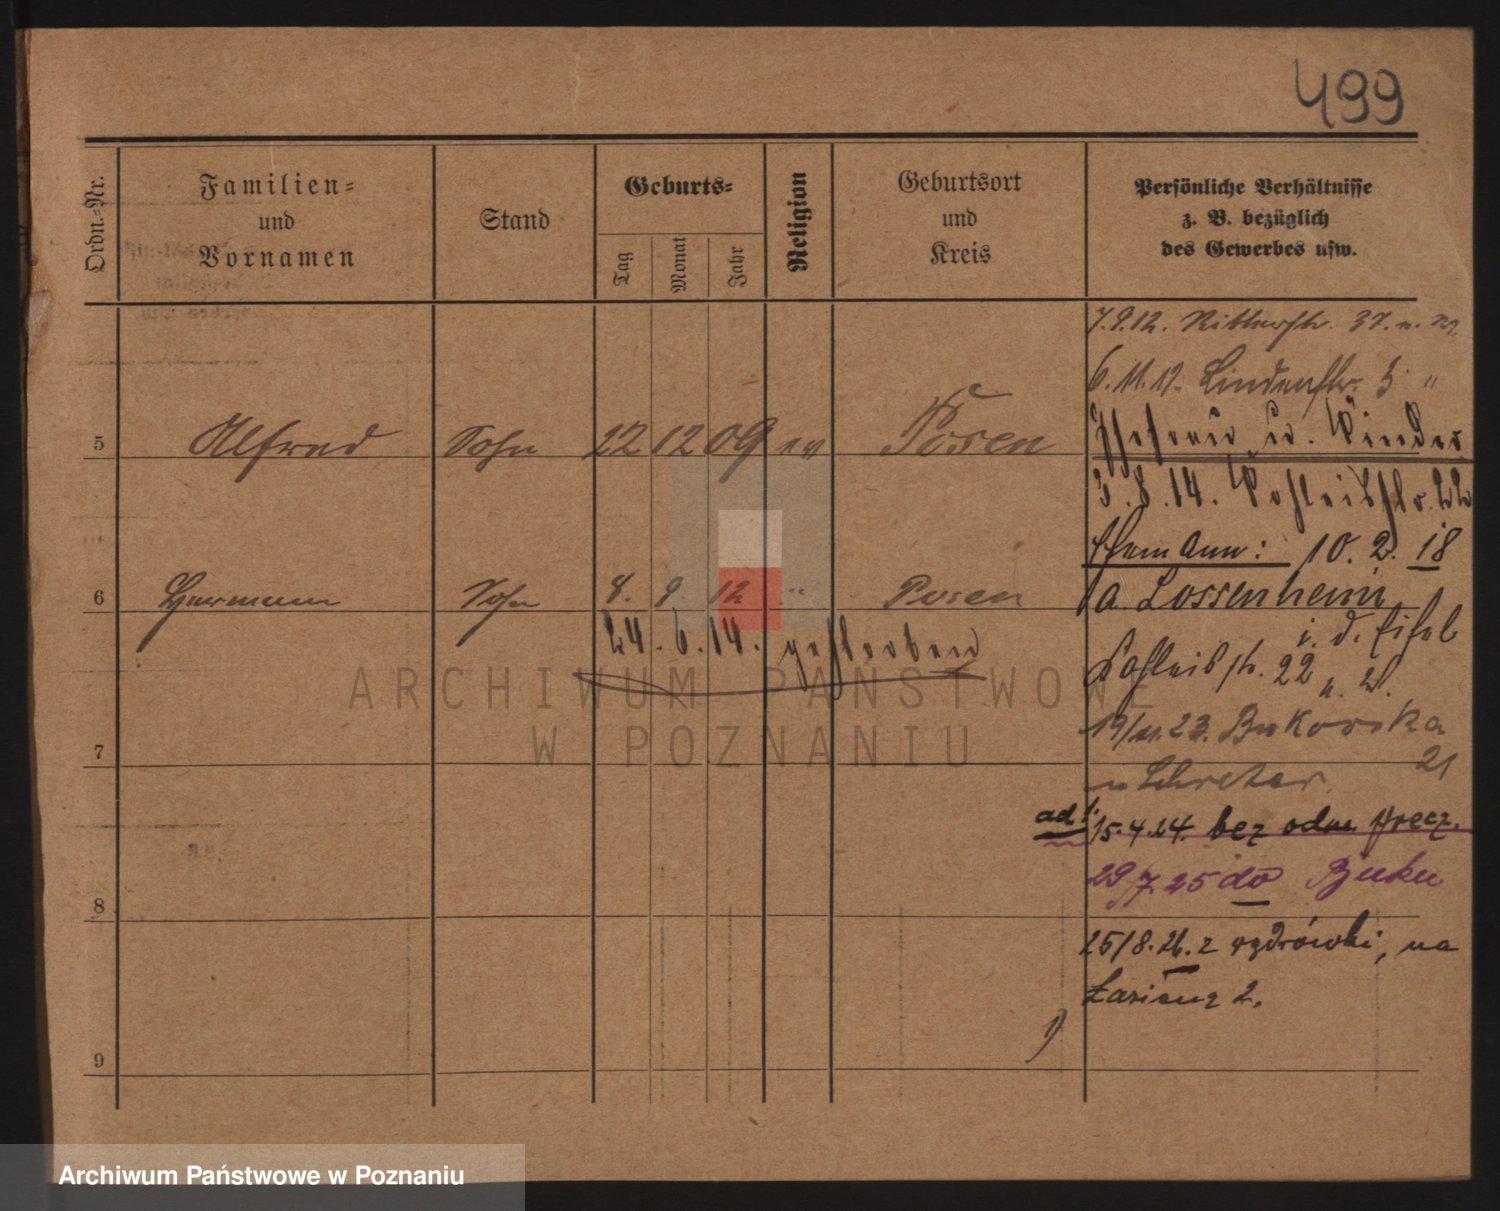 499
Ordn.-Nr.
Familien-
und
Vornamen
Stand
Geburts-
Tag
Monat
Jahr
Religion
Geburtsort
und
Kreis
Persönliche Verhältnisse
z. B. bezüglich
des Gewerbes usw.
7.9.12. Ritterstr. 37.
6.11.12. Lindenstr. 3 "
5 Alfred Sohn 22 12 09 ev Posen
Ehefrau u. Kinder
3.8.14.
Ehemann: 10.2.18
6 Hermann Sohn 8. 9. 12 " Posen
a. Lossenheim
i. d. Eifel
24.6.14. gestorben
22
19/11.23. Bukowska
21
7
u Schreter.
ad 1. 15.4.24. bez odm. precz.
29/7.25 do Buku
8
25/8.26. z wędrówki, na
Łazienz 2.
1)
9
ARCHIWUM PAŃSTWOWE
W POZNANIU
Archiwum Państwowe w Poznaniu